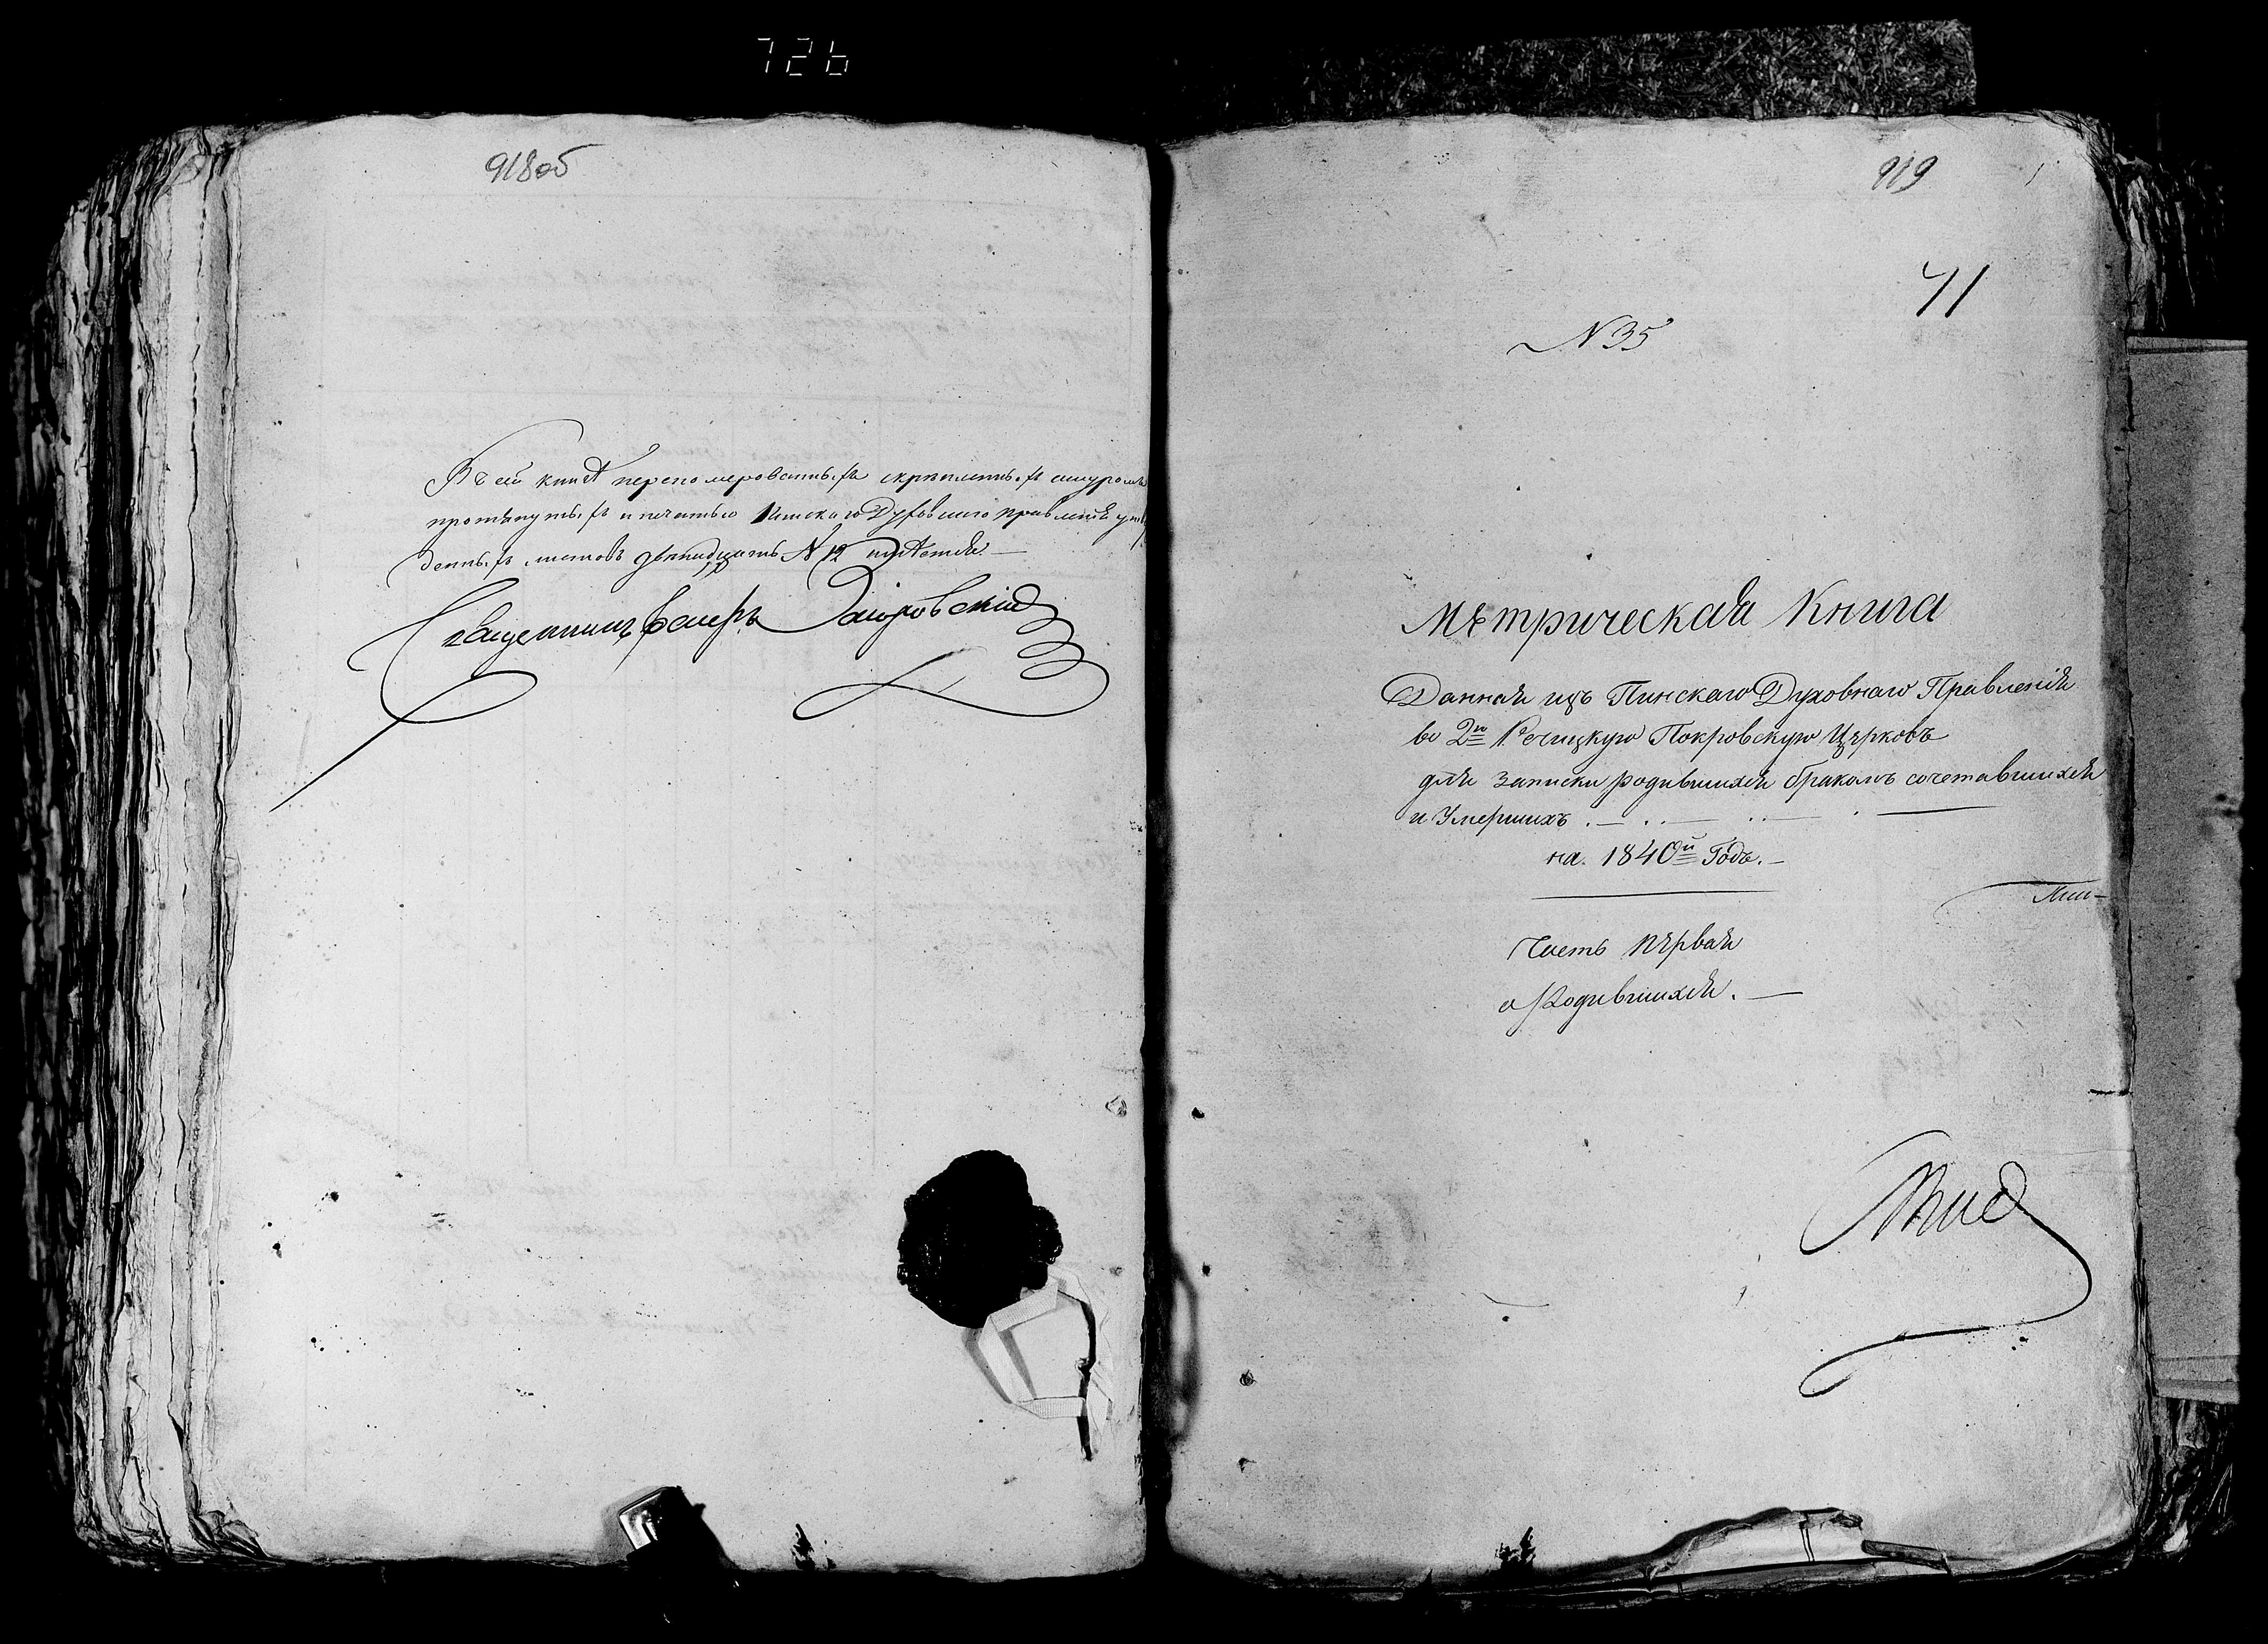 726
918об
Въ сей книгѣ перенумерованныхъ скрѣпленныхъ шнуромъ
протянутыхъ и печатью Пинскаго Духовнаго Правленія утвер
денныхъ листовъ двенадцать N 12
Священникъ
919
41
N 35
Мѣтрическая Книга
Данная изъ Пинскаго Духовнаго Правленія
во 2ю Речицкую Покровскую Цѣрковь
для записки родившихся бракомъ сочетавшихся
и Умершихъ
на 1840й Годъ.
Часть пѣрвая
о Родившихся.